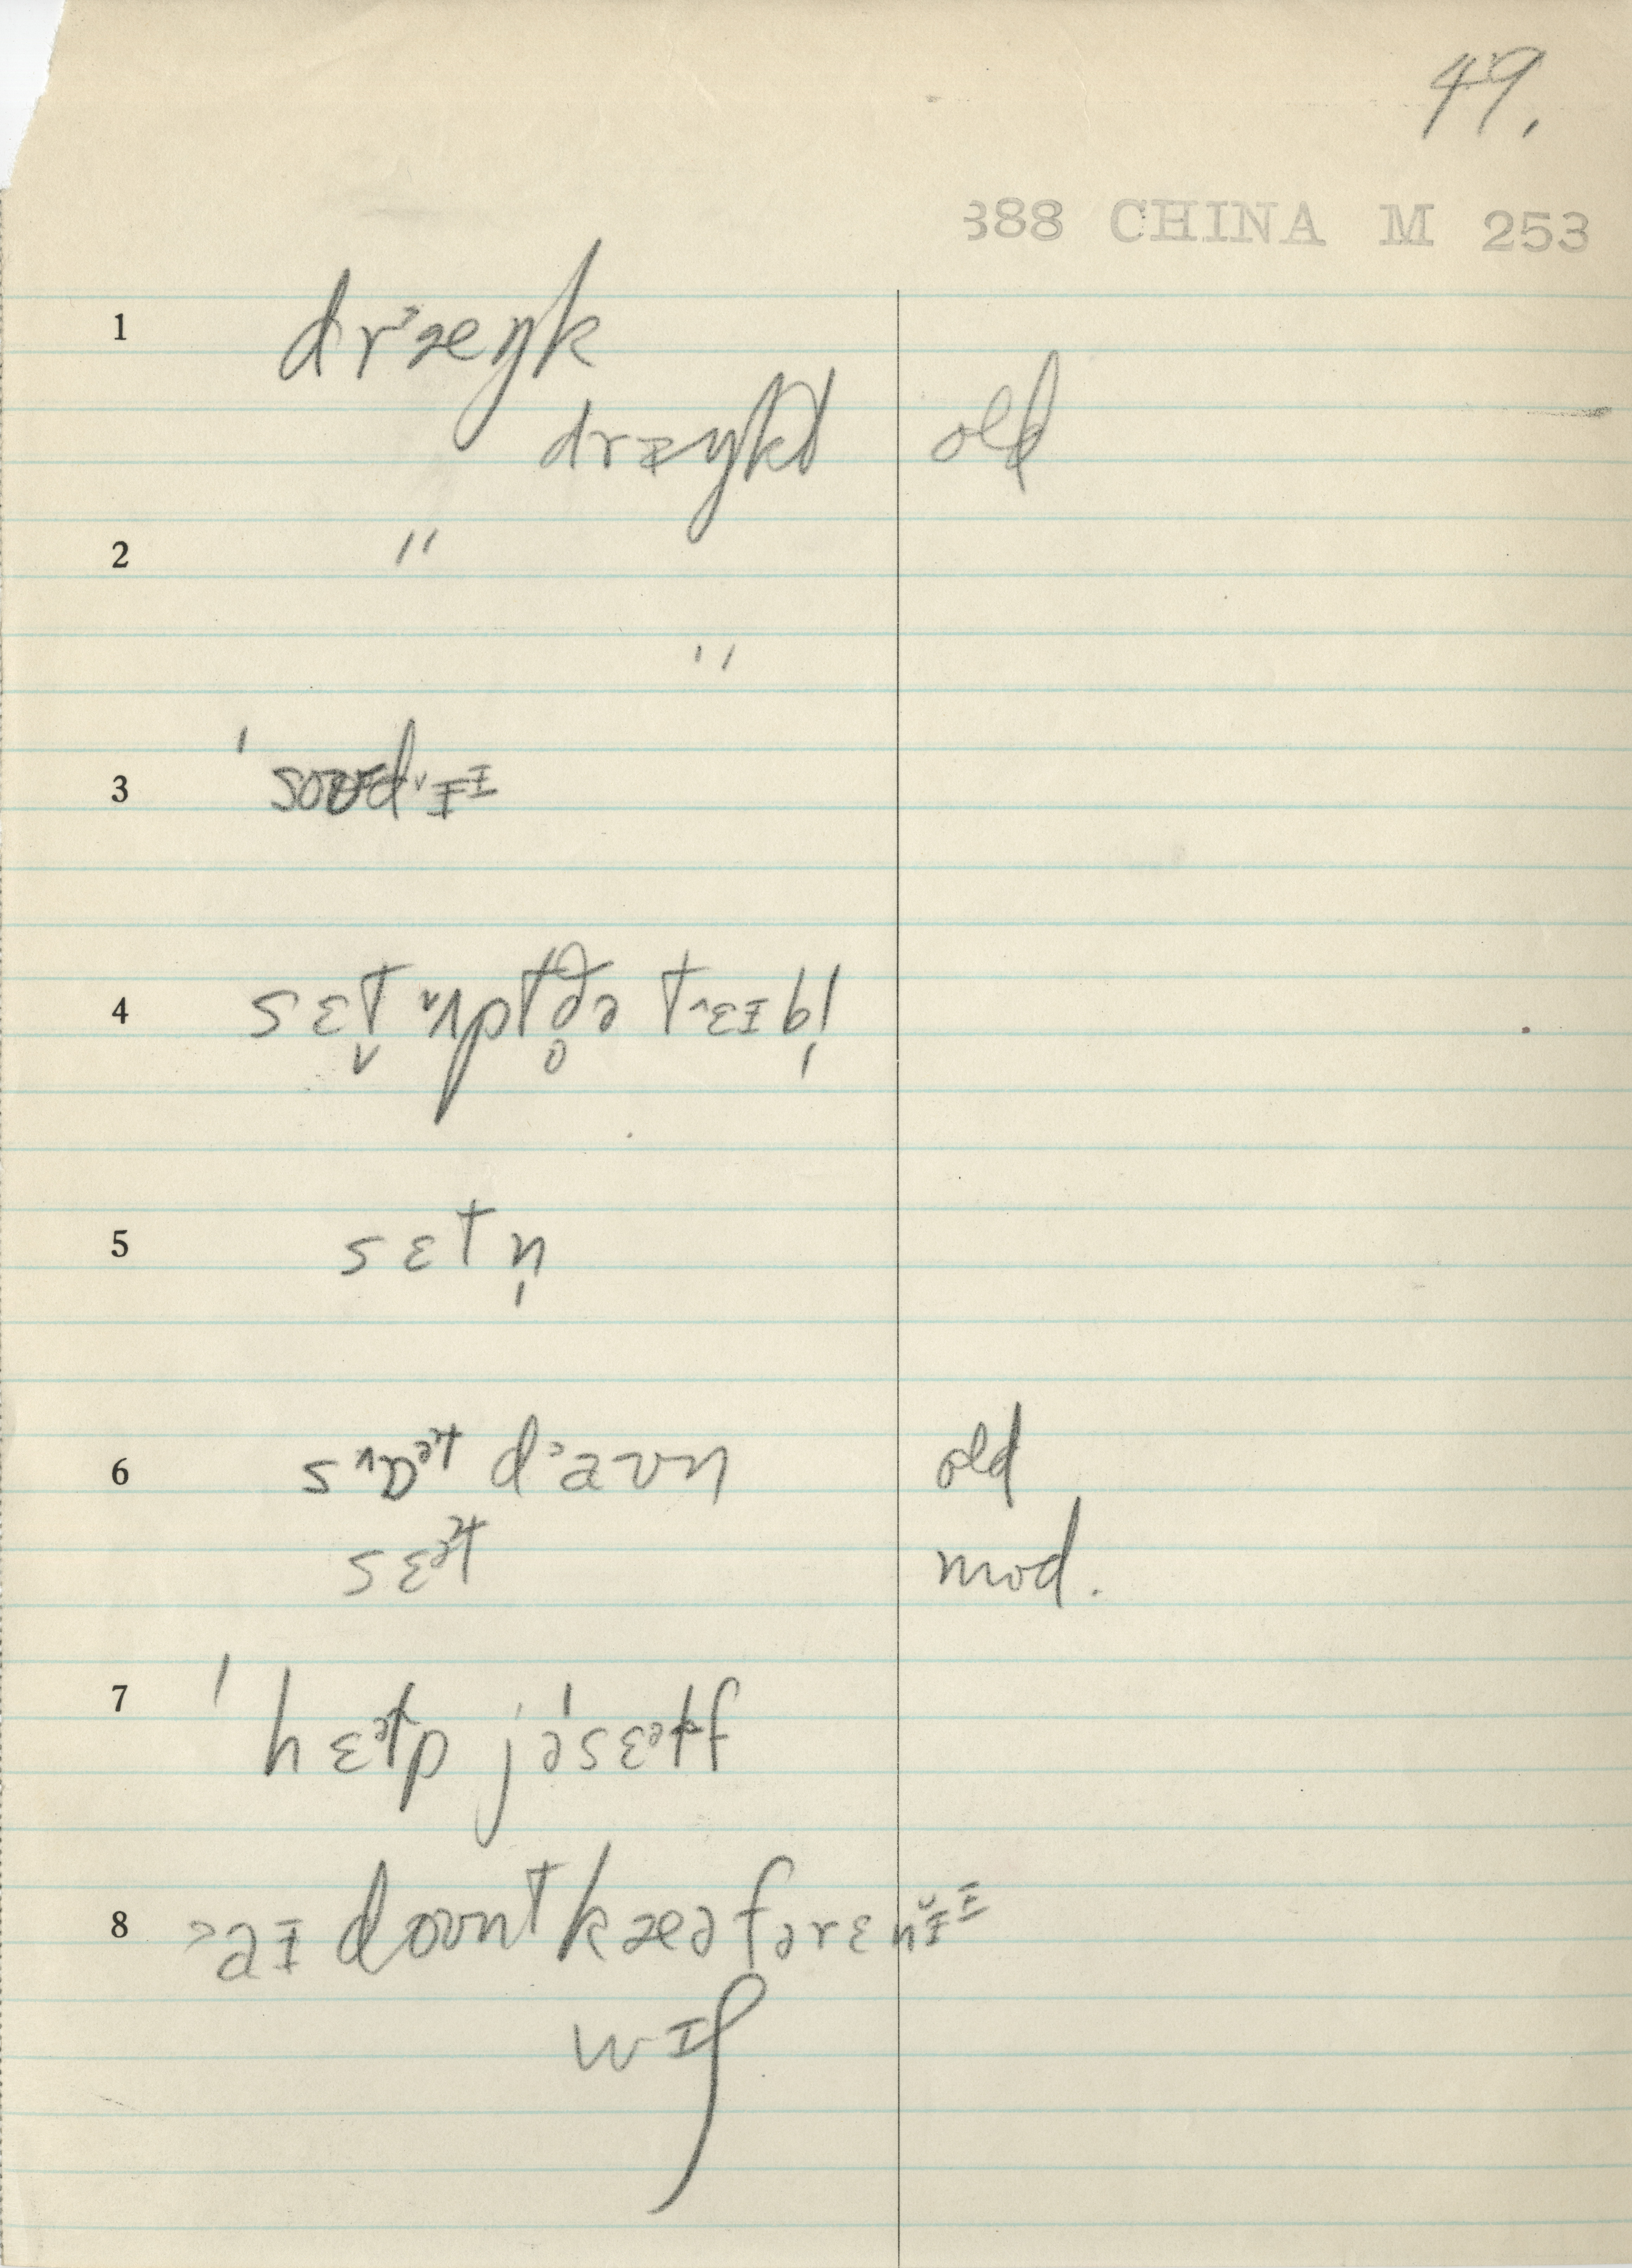 49.
388 CHINA M 253
1 dr˃æŋk
dræŋkt old
2 〃
〃
3 ˈsoʊdə˅ɨɪ
4 sɛt̬ ˅ʌptðə̥ t˄ɛɪbl̩
5 sɛtn̩
6 s˄ɒəɫt d˃aʊn old
sɛəɫt mod.
7 ˈhɛəɫp jəˈsɛəɫf
8 ˃aɪ doʊnt kæə fər ɛn˅ɨɪ
wɪʃ